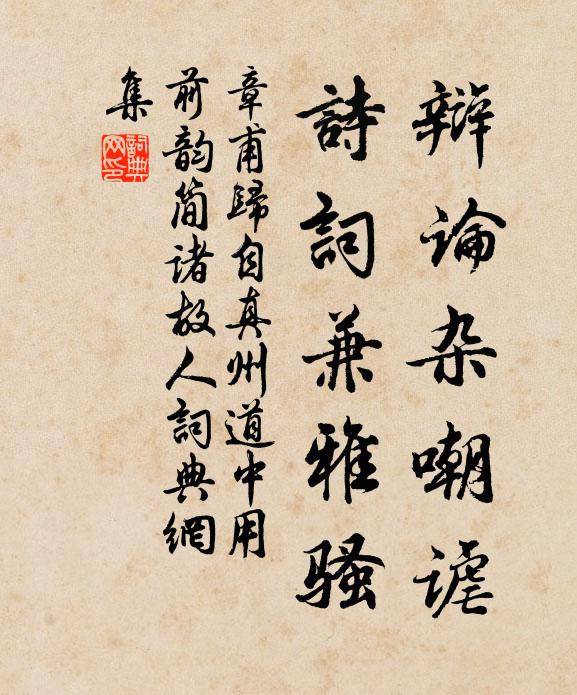 辩论杂嘲谑
詩詞兼雅骚
章甫歸自真州道中用
前韵简诸故人詞典網
集
詞典网印